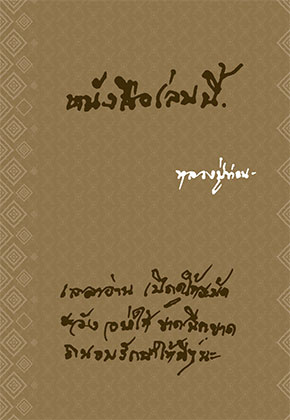 หนังสือเล่มนี้.
หลวงปู่ท่อน
เวลาอ่าน เปิดดูให้ระมัด
ระวัง อย่าให้ ขาดฉีกขาด
ถนอมรักษาให้ดีๆนะ